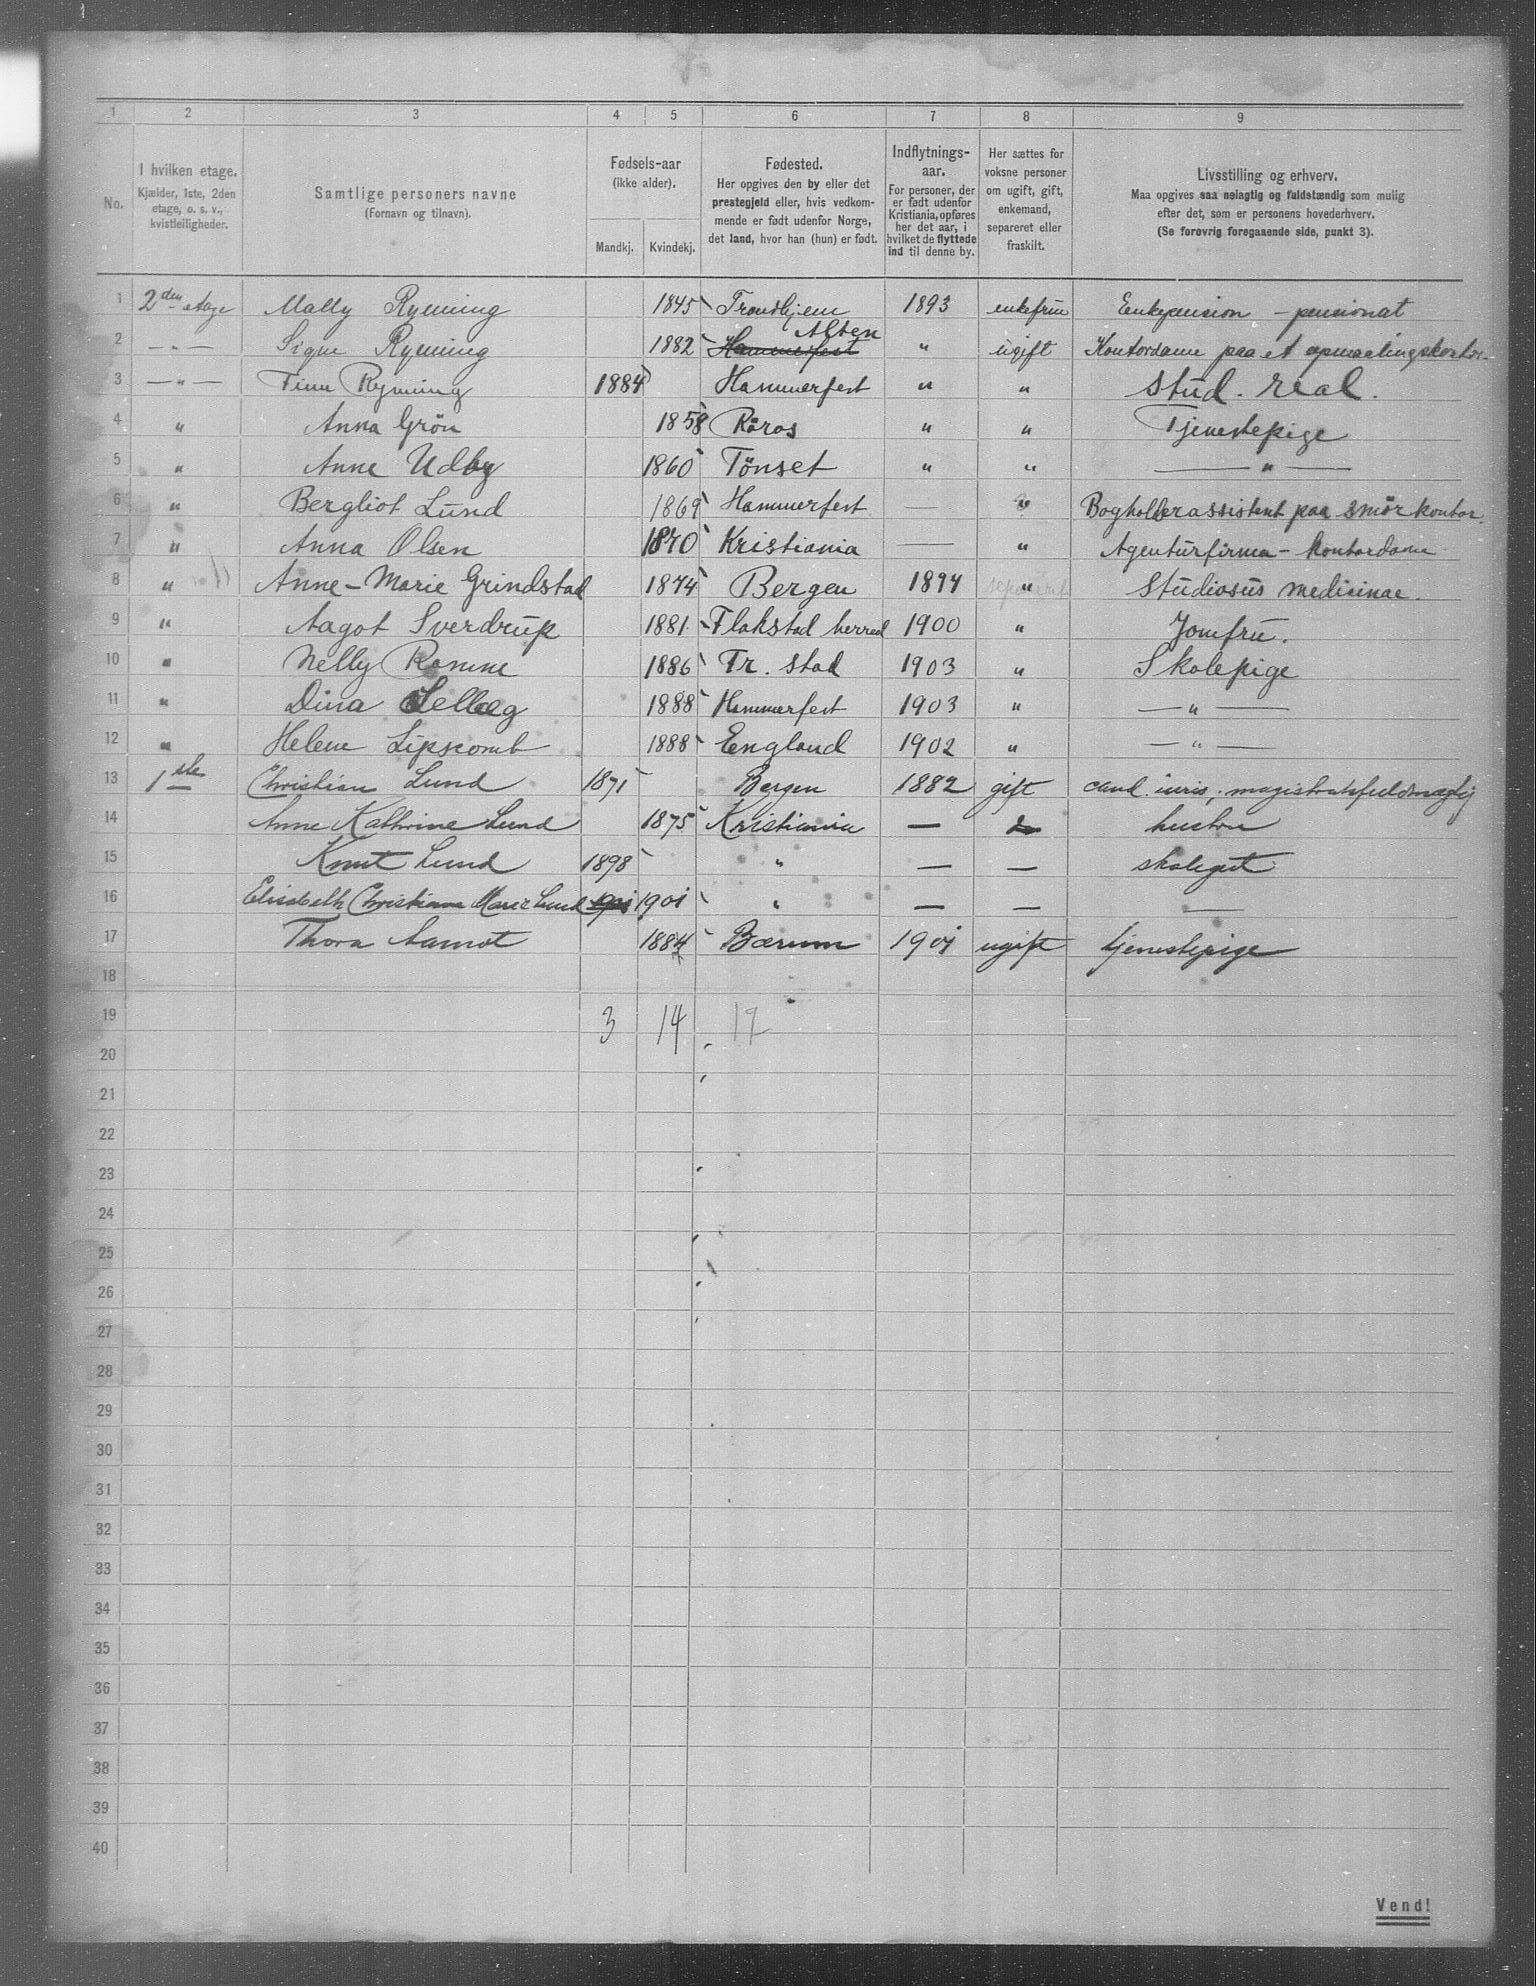 1 2 3 4 5 6 7 8 9
No.
I hvilken etage.
Kjælder, 1ste, 2den
etage, o. s. v.,
kvistleiligheder.
Samtlige personers navne
(Fornavn og tilnavn).
Fødsels-aar
(ikke alder).
Mandkj. Kvindekj.
Fødested.
Her opgives den by eller det
prestegjeld eller, hvis vedkom-
mende er født udenfor Norge,
det land, hvor han (hun) er født.
Indflytnings-
aar.
For personer, der
er født udenfor
Kristiania, opføres
her det aar, i
hvilket de flyttede
ind til denne by.
Her sættes for
voksne personer
om ugift, gift,
enkemand,
separeret eller
fraskilt.
Livsstilling og erhverv.
Maa opgives saa nøiagtig og fuldstændig som mulig
efter det, som er personens hovederhverv.
(Se forøvrig foregaaende side, punkt 3).
1 2den etage Mally Ryming 1845 Trondhjem 1893 enkefrue Enkepension – pensionat
2 — " — Signe Ryming 1882 Hammerfest Alten " ugift Kontordame paa et opmaalingskontor
3 — " — Finn Ryming 1884 Hammerfest " " stud. real.
4 " Anna Grön 1858 Röros " " Tjenestepige
5 " Anne Udby 1860 Tönset " " — " —
6 " Bergliot Lund 1869 Hammerfest — " Bogholderassistent paa smörkontor.
7 " Anna Olsen 1870 Kristiania — " Agenturfirma – kontordame
8 " Anne-Marie Grindstad 1874 Bergen 1894 " Studiosus medicinae.
9 " Aagot Sverdrup 1881 Flakstad herred 1900 " Jomfru.
10 " Nelly Romne 1886 Fr. stad 1903 " Skolepige
11 " Dina Selleg 1888 Hammerfest 1903 " — " —
12 " Helene Lipscomb 1888 England 1902 " — " —
13 1ste Christian Lund 1871 Bergen 1882 gift cand. iuris, magistratsfuldmægtig
14 Anne Kathrine Lund 1875 Kristiania — do hustru
15 Knut Lund 1898 " — — skolegut
16 Elisabeth Christiane Marie Lund 1901 1901 " — — —
17 Thora Aamot 1884 Bærum 1901 ugift tjenestepige
18
19 3 14 17
20
21
22
23
24
25
26
27
28
29
30
31
32
33
34
35
36
37
38
39
40
Vend!